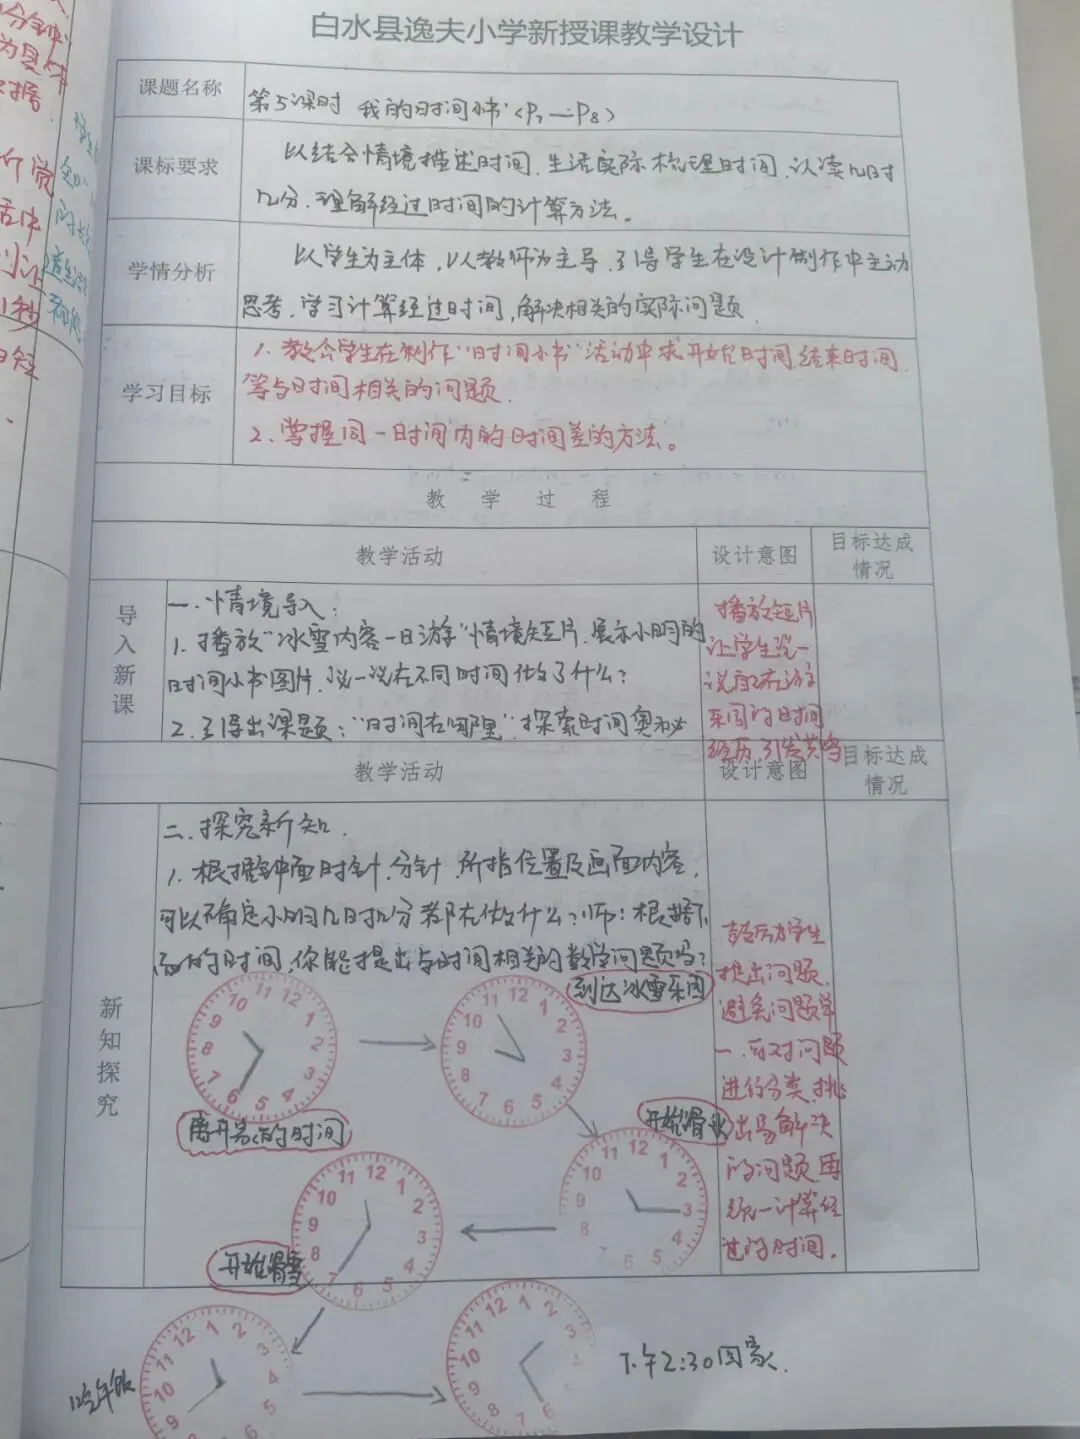 白水县逸夫小学新授课教学设计
课题名称
第5课时 我的时间小书<P7—P8>
课标要求
以结合情境描述时间、生活实际梳理时间、认读几时
几分、理解经过时间的计算方法。
学情分析
以学生为主体,以教师为主导,引导学生在设计制作中主动
思考,学习计算经过时间,解决相关的实际问题
学习目标
1、教会学生在制作"时间小书"活动中求开始时间,结束时间
等与时间相关的问题.
2、掌握同一时间内的时间差的方法。
教 学 过 程
教学活动
设计意图
目标达成
情况
导入新课
一.情境导入:
1.播放"冰雪内容一日游"情境短片.展示小明的
时间小书图片,说一说在不同时间做了什么?
2.引导出课题:"时间在哪里",探索时间奥秘
播放短片
让学生说一
说自己在游
乐园的时间
经历,引发共鸣
教学活动
设计意图
目标达成
情况
新知探究
二.探究新知.
1.根据钟面时针.分针.所指位置及画面内容,
可以确定小明几时几分都在做什么?师:根据下
面的时间,你能提出与时间相关的数学问题吗?
鼓励学生
提出问题,
避免问题单
一.再对问题
进行分类,挑
出易解决
的问题,再
统一计算经
过的时间.
到达冰雪乐园
离开家的时间
开始滑冰
开始滑雪
吃午饭
下午2:30回家.